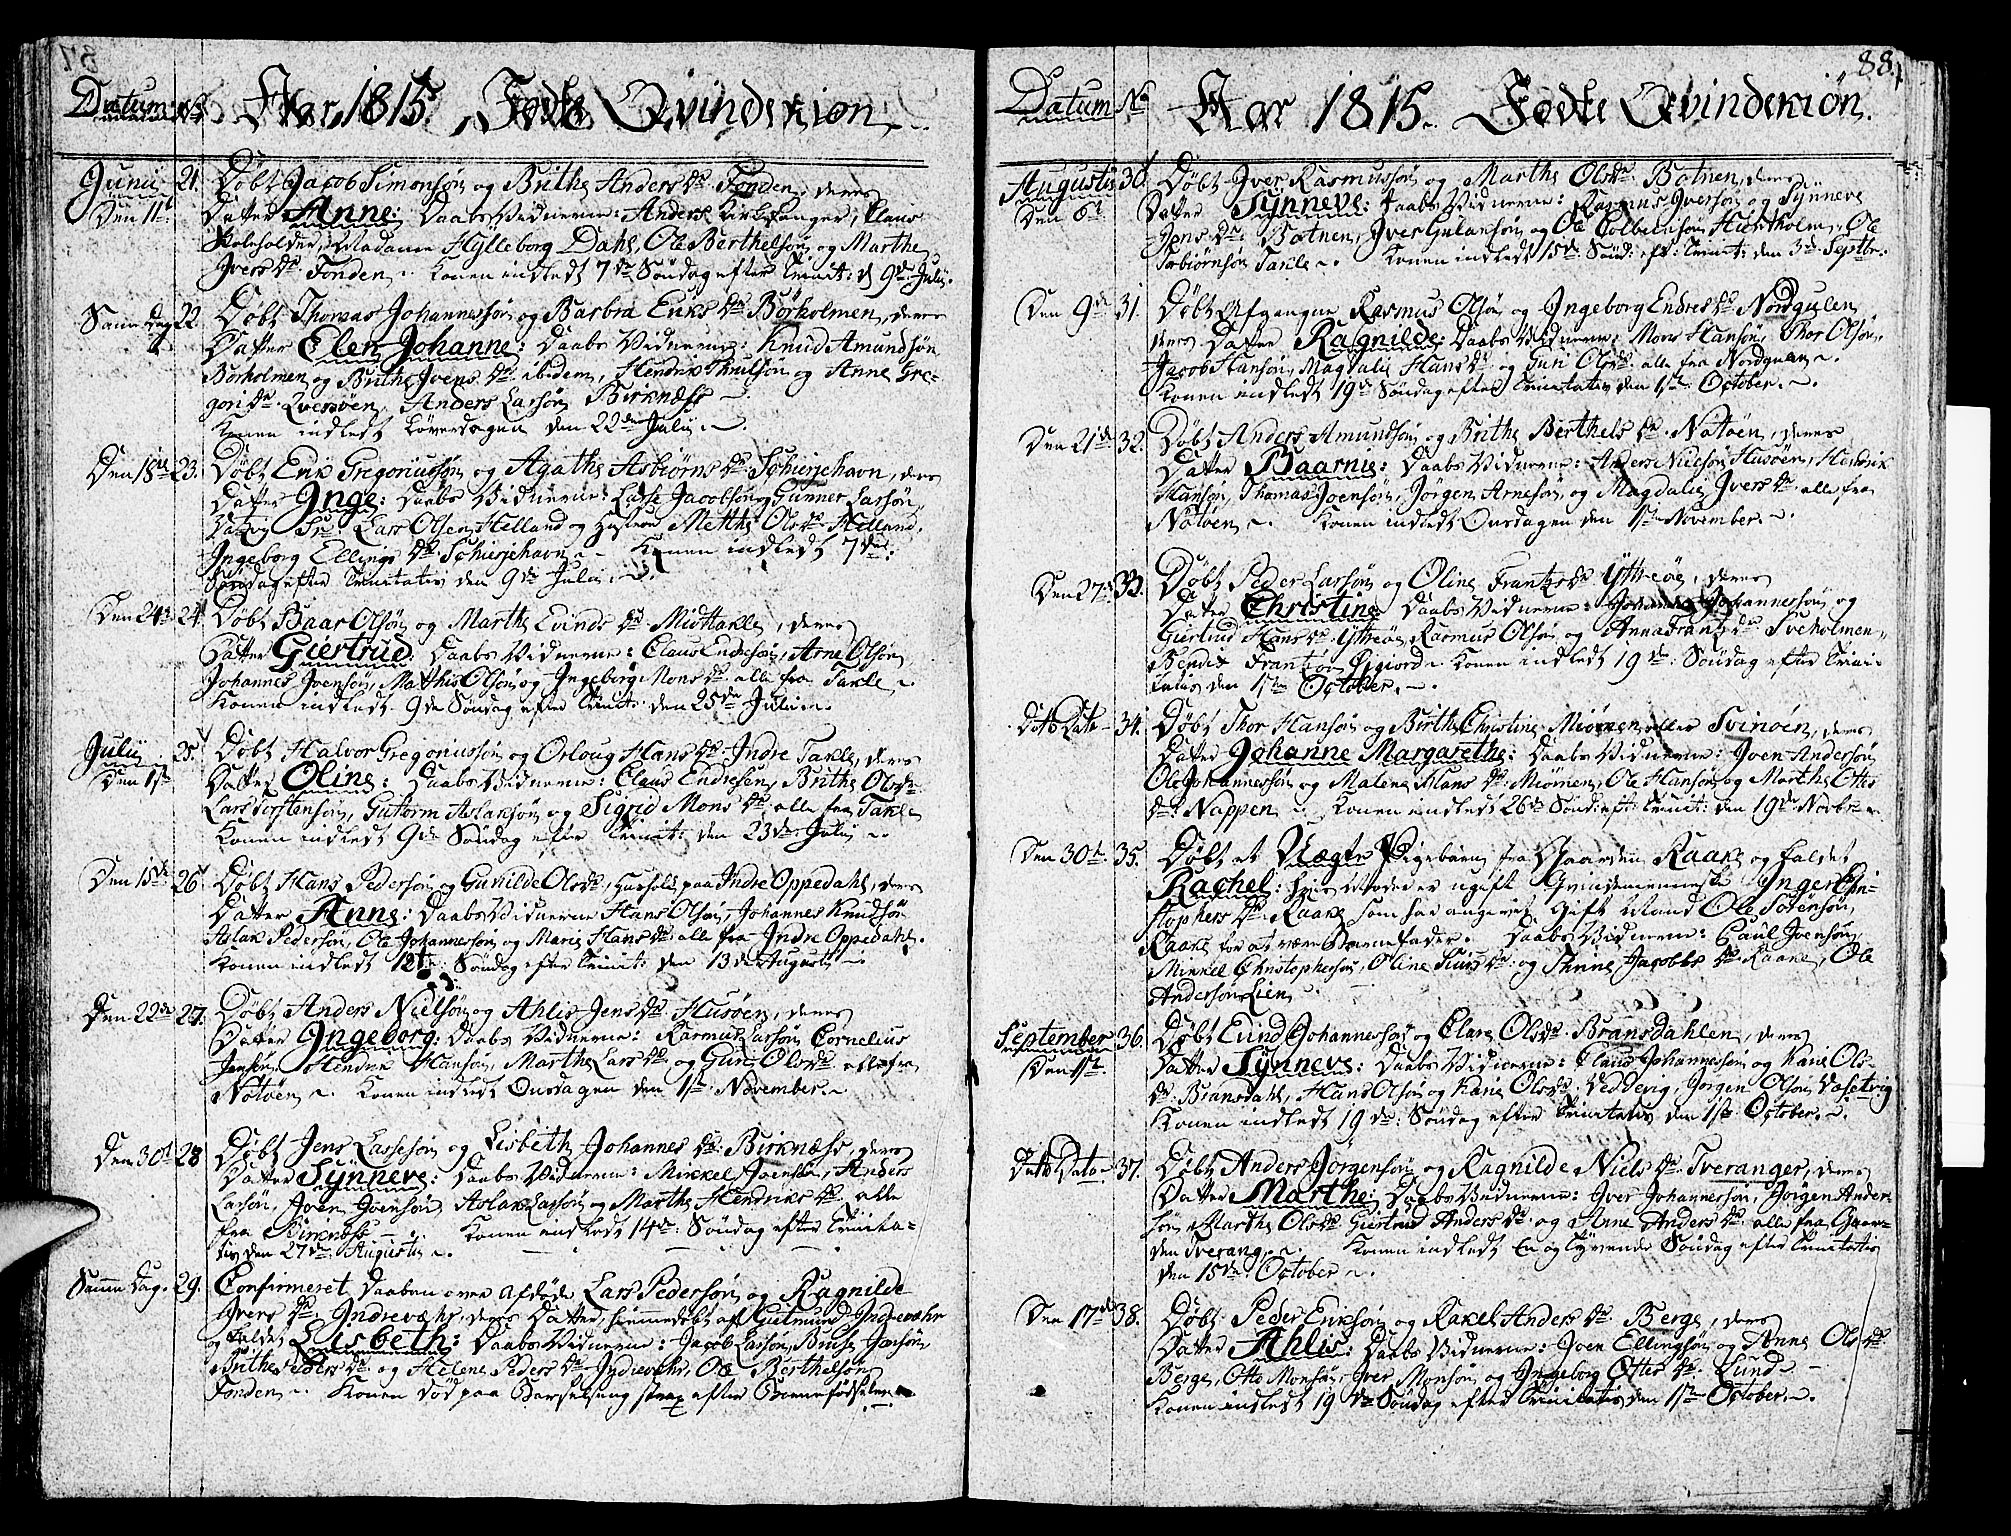 Datum No Aar 1815. Fødte Qvindekiøn.
Junii 21. Døbt Jacob Simonsøn og Brithe Anders dr. Fonden, deres
Den 11te Datter Anne: Daabs Vidnerne: Anders Kirkesanger, Claus
Skoleholder, Madame Hylleborg Dahl, Ole Berthelsøn og Marthe
Ivers dr. Fonden. Konen indledt 7de Søndag efter Trinit: d 9de Julii.
Samme Dag 22. Døbt Thomas Johannessøn og Barbra Eriks dr. Börholmen, deres
Datter Elen Johanne: Daabs Vidnerne: Knud Amundsøn
Borholmen og Brithe Joens dr. ibidem, Hendrik Poulsøn og Anne Gre-
gori dr. Qversøen, Anders Larsøn Birknæss
Konen indledt Løverdagen den 22de Julii.
Den 18de 23. Døbt Erik Gregoriussøn og Agathe Asbiørns dr. Schierjehavn, deres
Datter Inge: Daabs Vidnerne: Lasse Jacobsøn, Gunner Larsøn
Lars Olsen Helland og Hustroe Metthe Ols dr. Helland,
Ingeborg Ellings dr. Schierjehavn. Konen indledt 7de
Søndag efter Trinitatis den 9de Julii.
Den 24de 24. Døbt Baar Olsøn og Marthe Evinds dr. Midttakle, deres
Datter Giertrud: Daabs Vidnerne: Claus Endresøn, Arne Olsøn,
Johannes Joensøn, Mathis Olsøn og Ingeborg Mons dr. alle fra Takle
Konen indledt 9de Søndag efter Trinit: den 25de Julii.
Julii 25. Døbt Halvor Gregoriussøn og Orloug Hans dr. Indre Takle, deres
Den 1ste Datter Oline: Daabs Vidnerne: Claus Endresen, Brithe Ols dr.
Lars Torstensøn, Guttorm Aslaksøn og Sigrid Mons dr. alle fra Takle
Konen indledt 9de Søndag efter Trinit: den 23de Julii
Den 15de 26. Døbt Hans Pedersøn og Gunilde Ols dr., Huusfolk paa Indre Oppedahl, deres
Datter Anne: Daabs Vidnerne Hans Olsøn, Johannes Knudsøn
Aslak Pedersøn, Ole Johannessøn og Marie Hans dr. alle fra Indre Oppedahl.
Konen indledt 12te Søndag efter Trinit: den 13de Augusti
Den 22de 27. Døbt Anders Nielsøn og Ahlis Jens dr. Husøen, deres
Datter Ingeborg: Daabs Vidnerne: Rasmus Larsøn, Cornelius
Jensøn, Hendrik Hansøn, Marthe Lars dr. og Guri Ols dr. alle fra
Nötöen. Konen indledt Onsdagen den 1ste November.
Den 30te 28 Døbt Jens Lassesøn og Lisbeth Johannes dr. Birknæss, deres
Datter Synneve: Daabs Vidnerne: Mikkel Joensøn, Anders
Larsøn, Joen Joensøn, Aslak Larsøn og Marthe Hendriks dr. alle
fra Birknæss. Konen indledt 14de Søndag efter Trinita-
tis den 27de Augusti.
Samme Dag. 29. Confirmeret Daaben over afdøde Lars Pedersøn og Ragnilde
Ivers dr. Indrevæhr, deres Datter, hiemmedøbt af Gutmund Indrevæhr
og kaldet Lisbeth: Daabs Vidnerne: Jacob Larsøn,
Brithe Peders dr. og Helene Peders dr. Indrevæhr, Ole Berthelsøn
Fonden. Konen død paa Barselseng strax efter Barnefødselen.
88.
Datum No Aar 1815. Fødte Qvindekiøn.
Augusti 30. Døbt Iver Rasmussøn og Marthe Ols dr. Botnen, deres
Den 6te Datter Synneve: Daabs Vidnerne: Rasmus Iversøn og Synneve
Jens dr. Botnen, Iver Gulaksøn og Ole Colbeensøn Hiortholm, Ole
Torbiørnsøn Takle. Konen indledt 15de Sønd: eft: Trinit: den 3de Septbr.
Den 9de 31. Døbt Afgangne Rasmus Olsøn og Ingeborg Endres dr. Nordgulen,
deres Datter Ragnilde: Daabs Vidnerne: Mons Hansøn, Thor Olsøn,
Jacob Hansøn, Magdali Hans dr. og Guri Ols dr. alle fra Nordgulen.
Konen indledt 19de Søndag efter Trinitatis den 1ste October.
Den 21de 32. Døbt Anders Amundsøn og Brithe Berthels dr. Notöen, deres
Datter Baarnie: Daabs Vidnerne: Anders Nielsøn Husøen, Hendrik
Hansøn, Thomas Joensøn, Jørgen Arnesøn, og Magdalis Ivers dr. alle fra
Nötöen. Konen indledt Onsdagen den 1ste November.
Den 27de 33. Døbt Peder Larsøn og Oline Frantz dr. Yttreöe, deres
Datter Christine Daabs Vidnerne: Johannes Johannessøn og
Giertrud Hans dr. Yttreöe, Rasmus Olsøn og Anna Frantz dr. Sveholmen,
Bendix Frantzøn. Konen indledt 19de Søndag efter Trini-
tatis den 1ste October.
Dito Dato 34. Døbt Thor Hansøn og Birthe Christine Miömen eller Svinöen, deres
Datter Johanne Margarethe: Daabs Vidnerne: Joen Andersøn,
Ole Johannessøn og Malene Hans dr. Miömen, Ole Hansøn og Marthe Ottes
dr. Nappen. Konen indledt 26de Sønd: eft: Trinit: den 19de Novbr.
Den 30te 35. Døbt et Uægte Pigebarn fra Gaarden Raake og kaldet
Rachel: hvis Moder er ugift Qvindemenneske Inger Chri-
stophers dr. Raake som har angivet Gift Mand Ole Sørensøn,
Raake for at være Barnefader. Daabs Vidnerne: Paul Joensøn,
Mikkel Christophersøn, Oline Siurs dr. og Thrine Jacobs dr. Raake, Ole
Andersøn Lien
September 36. Døbt Evind Johannessøn og Clare Ols dr. Bransdahlen, deres
Den 1ste Datter Synneve: Daabs Vidnerne: Claus Johannessøn og Karie Ols-
dr. Bransdahl, Hans Olsøn og Karie Ols dr. Veddevig, Jørgen Olsøn Dasetvig
Konen indledt 19de Søndag efter Trinitatis den 1ste October.
Dito Dato 37. Døbt Anders Jørgensøn og Ragnilde Niels dr. Tveranger, deres
Datter Marthe: Daabs Vidnerne: Iver Johannessøn, Jørgen Ander-
søn, Marthe Ols dr. Giertrud Anders dr. og Anne Anders dr. alle fra Gaar-
den Tverang. Konen indledt En og tyvende Søndag efter Trinitatis
den 15de October
Den 17de 38. Døbt Peder Eriksøn og Rakel Anders dr. Berge, deres
Datter Ahlis: Daabs Vidnerne: Joen Ellingsøn og Anne Ols dr.
Berge, Otto Monsøn, Iver Monsøn og Ingeborg Ottes dr. Lund
Konen indledt 19de Søndag efter Trinitatis den 1ste October.